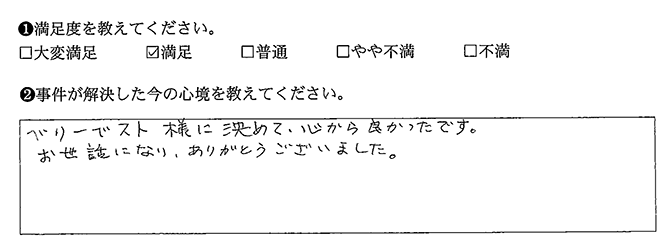 ❶満足度を教えてください。
□大変満足 ☑満足 □普通 □やや不満 □不満
❷事件が解決した今の心境を教えてください。
べリーベスト様に決めて、心から良かったです。
お世話になり、ありがとうございました。